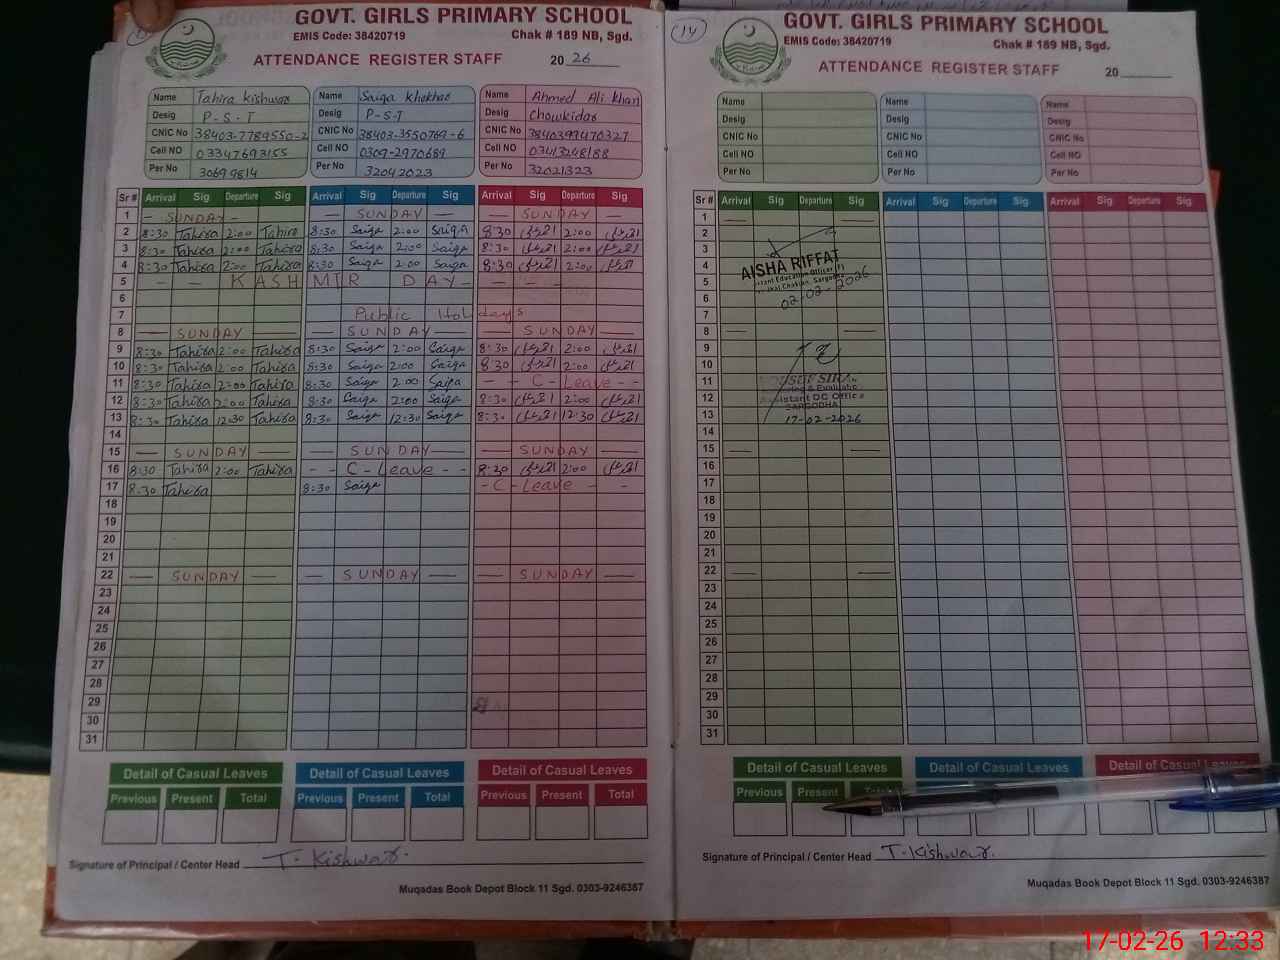 GOVT. GIRLS PRIMARY SCHOOL
EMIS Code: 38420719 Chak # 189 NB, Sgd.
ATTENDANCE REGISTER STAFF 2026
Name Tahira Kishwar Name Saiqa Khokhar Name Ahmed Ali Khan
Desig P-S-T Desig P-S-T Desig Chowkidar
CNIC No 38403-7789550-2 CNIC No 38403-3550769-6 CNIC No 3840399470327
Cell NO 03347693155 Cell NO 0309-2970689 Cell NO 03413248188
Per No 30699814 Per No 32042023 Per No 32021323
Sr # Arrival Sig Departure Sig Arrival Sig Departure Sig Arrival Sig Departure Sig
1 - SUNDAY - — SUNDAY — — SUNDAY —
2 8:30 Tahira 2:00 Tahira 8:30 Saiqa 2:00 Saiqa 8:30 2:00
3 8:30 Tahira 2:00 Tahira 8:30 Saiqa 2:00 Saiqa 8:30 2:00
4 8:30 Tahira 2:00 Tahira 8:30 Saiqa 2:00 Saiqa 8:30 2:00
5 - - KASHMIR DAY - - - -
6
7 Public Holidays
8 — SUNDAY — — SUNDAY — — SUNDAY —
9 8:30 Tahira 2:00 Tahira 8:30 Saiqa 2:00 Saiqa 8:30 2:00
10 8:30 Tahira 2:00 Tahira 8:30 Saiqa 2:00 Saiqa 8:30 2:00
11 8:30 Tahira 2:00 Tahira 8:30 Saiqa 2:00 Saiqa - - C - Leave - -
12 8:30 Tahira 2:00 Tahira 8:30 Saiqa 2:00 Saiqa 8:30 2:00
13 8:30 Tahira 12:30 Tahira 8:30 Saiqa 12:30 Saiqa 8:30 12:30
14
15 — SUNDAY — — SUNDAY — — SUNDAY —
16 8:30 Tahira 2:00 Tahira - - C - Leave - - 8:30 2:00
17 8:30 Tahira 8:30 Saiqa - C - Leave - -
18
19
20
21
22 — SUNDAY — — SUNDAY — — SUNDAY —
23
24
25
26
27
28
29
30
31
Detail of Casual Leaves Detail of Casual Leaves Detail of Casual Leaves
Previous Present Total Previous Present Total Previous Present Total
Signature of Principal / Center Head T. Kishwar.
Muqadas Book Depot Block 11 Sgd. 0303-9246387
14
GOVT. GIRLS PRIMARY SCHOOL
EMIS Code: 38420719 Chak # 189 NB, Sgd.
ATTENDANCE REGISTER STAFF 20
Name Name Name
Desig Desig Desig
CNIC No CNIC No CNIC No
Cell NO Cell NO Cell NO
Per No Per No Per No
Sr # Arrival Sig Departure Sig Arrival Sig Departure Sig Arrival Sig Departure Sig
1
2
3
4 AISHA RIFFAT
5
6 02-02-2026
7
8
9
10
11 YOUSUF
12 Assistant DC Office
13 SARGODHA
17-02-2026
14
15
16
17
18
19
20
21
22
23
24
25
26
27
28
29
30
31
Detail of Casual Leaves Detail of Casual Leaves Detail of Casual Leaves
Previous Present Total
Signature of Principal / Center Head T. Kishwar.
Muqadas Book Depot Block 11 Sgd. 0303-9246387
17-02-26 12:33